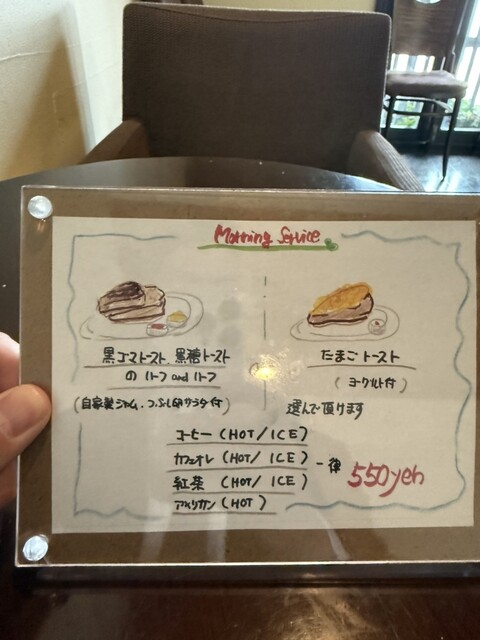 Morning Service
黒ゴマトースト、黒糖トースト
の ハーフ and ハーフ
(自家製ジャム、つぶし卵サラダ付)
たまごトースト
(ヨーグルト付)
選んで頂けます
コーヒー (HOT / ICE)
カフェオレ (HOT / ICE)
紅茶 (HOT / ICE)
アメリカン (HOT)
一律 550yen